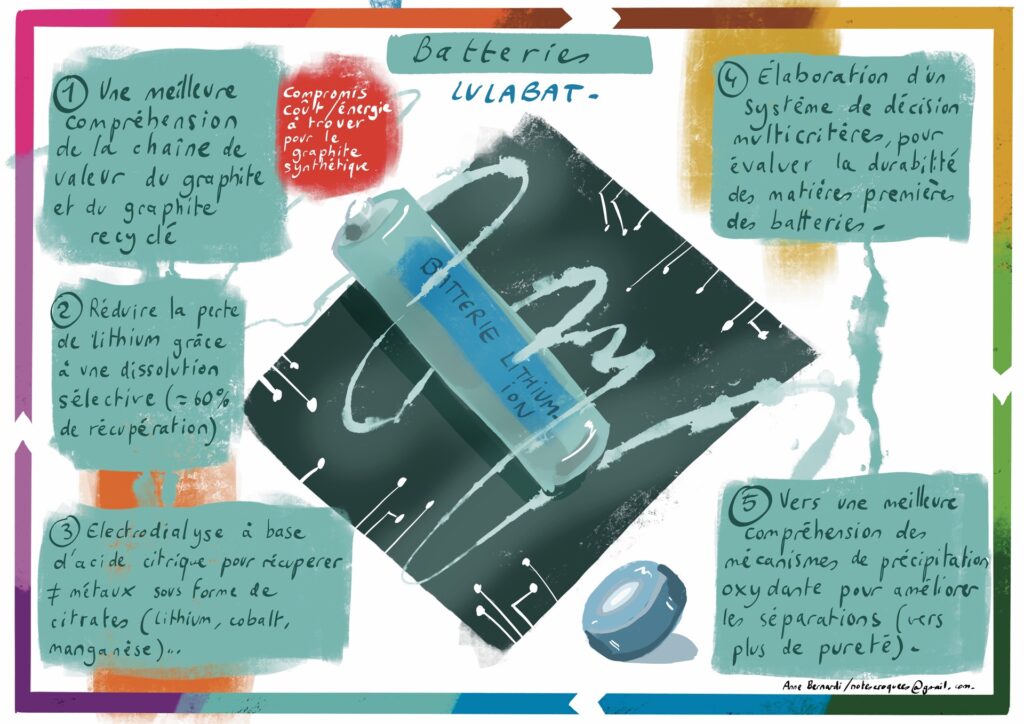 Batteries
LULABAT-
① Une meilleure
compréhension
de la chaîne de
valeur du graphite
et du graphite
recyclé
Compromis
coût/énergie
à trouver
pour le
graphite
synthétique.
② Réduire la perte
de lithium grâce
à une dissolution
sélective (≈60%
de récupération)
③ Electrodialyse à base
d'acide citrique pour récupérer
≠ métaux sous forme de
citrates (lithium, cobalt,
manganèse)...
BATTERIE LITHIUM-
ION
④ Élaboration d'un
système de décision
multicritères, pour
évaluer la durabilité
des matières premières
des batteries.
⑤ Vers une meilleure
compréhension des
mécanismes de précipitation
oxydante pour améliorer
les séparations (vers
plus de pureté).
Anne Bernardi/notescroquees@gmail.com